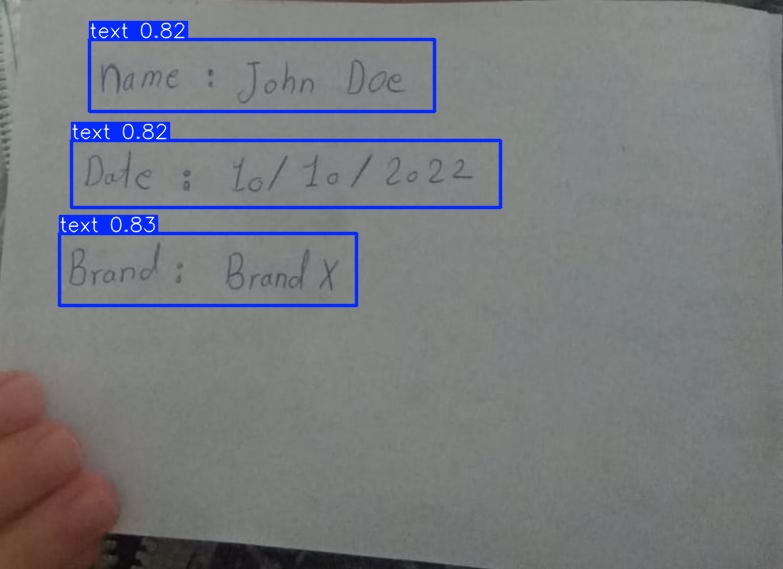 text 0.82
Name : John Doe
text 0.82
Date : 10/10/2022
text 0.83
Brand : Brand X